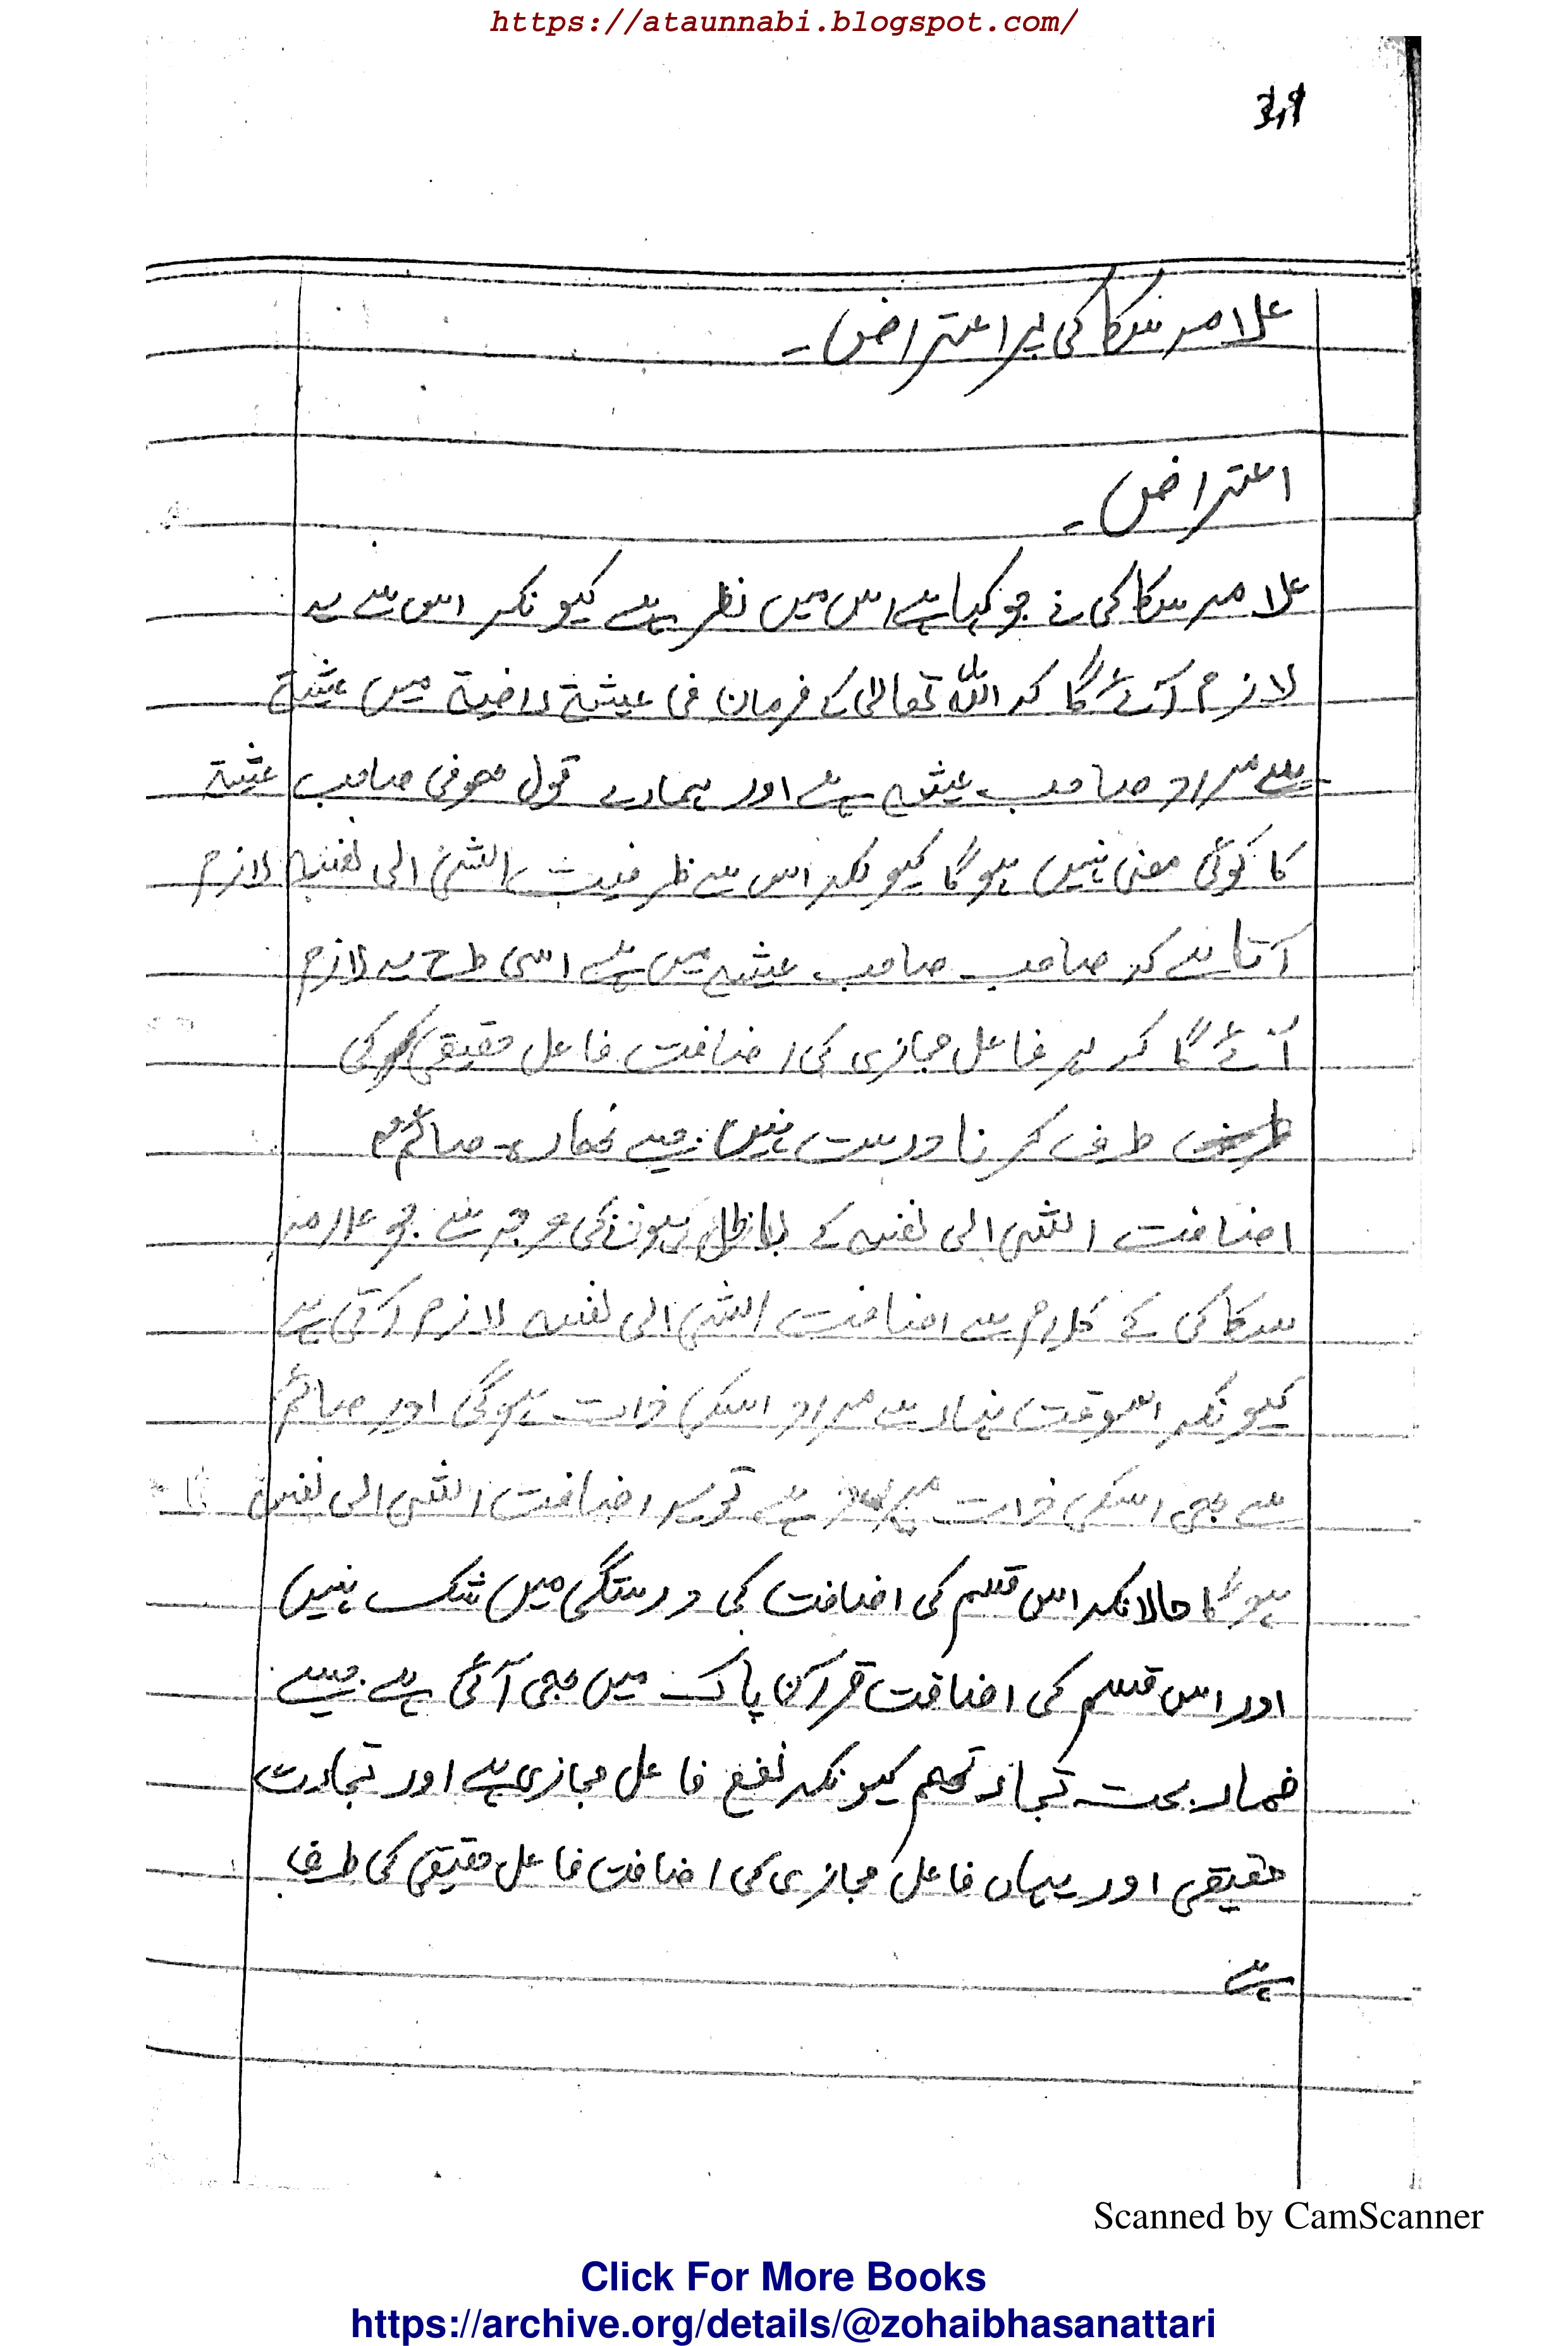 https://ataunnabi.blogspot.com/
علامہ سکاکی پر اعتراض۔
اعتراض۔
علامہ سکاکی نے جو کہا ہے اس میں نظر ہے کیونکہ اس سے یہ
لازم آئے گا کہ اللہ تعالیٰ کے فرمان فی عیشۃ راضیۃ میں عیشۃ
سے مراد صاحب عیشہ ہے اور ہمارے قول ھوفی صاحب عیشۃ
کا کوئی معنی نہیں ہوگا کیونکہ اس سے ظرفیت الشئ الی نفسہ لازم
آتا ہے کہ صاحب صاحب عیشہ میں ہے اسی طرح یہ لازم
آئے گا کہ ہر فاعل مجازی کی اضافت فاعل حقیقی کی
طرف کرنا درست نہیں جیسے نھارہ صائم
اضافت الشئ الی نفسہ کے باطل ہونے کی وجہ سے جو علامہ
سکاکی کے کلام سے اضافت الشئ الی نفسہ لازم آتی ہے
کیونکہ اسوقت نہار سے مراد اسکی ذات ہوگی اور صائم
سے بھی اسکی ذات ہے تو یہ اضافت الشئ الی نفسہ
ہوگا حالانکہ اس قسم کی اضافت کی درستگی میں شک نہیں
اور اس قسم کی اضافت قرآن پاک میں بھی آئی ہے جیسے
فمار بحت تجارتھم کیونکہ نفع فاعل مجازی ہے اور تجارت
حقیقی اور یہاں فاعل مجازی کی اضافت فاعل حقیقی کی طرف
ہے
Scanned by CamScanner
Click For More Books
https://archive.org/details/@zohaibhasanattari